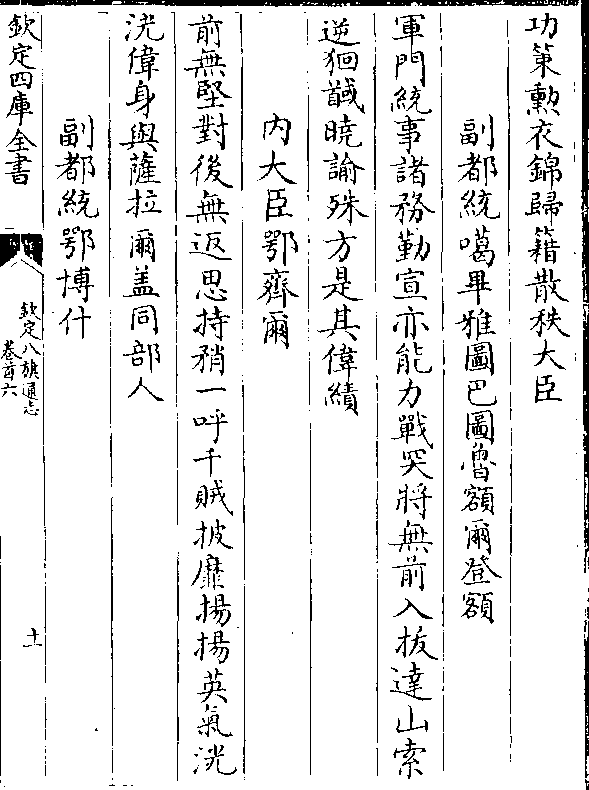 功策勲衣錦歸籍散秩大臣
副都統噶畢雅圖巴圖魯額爾登額
軍門統事諸務勤宣亦能力戰突將無前入拔達山索
逆狥馘曉諭殊方是其偉績
内大臣鄂齊爾
前無堅對後無返思持矟一呼千賊披靡揚揚英氣洸
洸偉身與薩拉爾盖同部人
副都統鄂博什
欽定四庫全書
欽定八旗通志
卷首六
十一